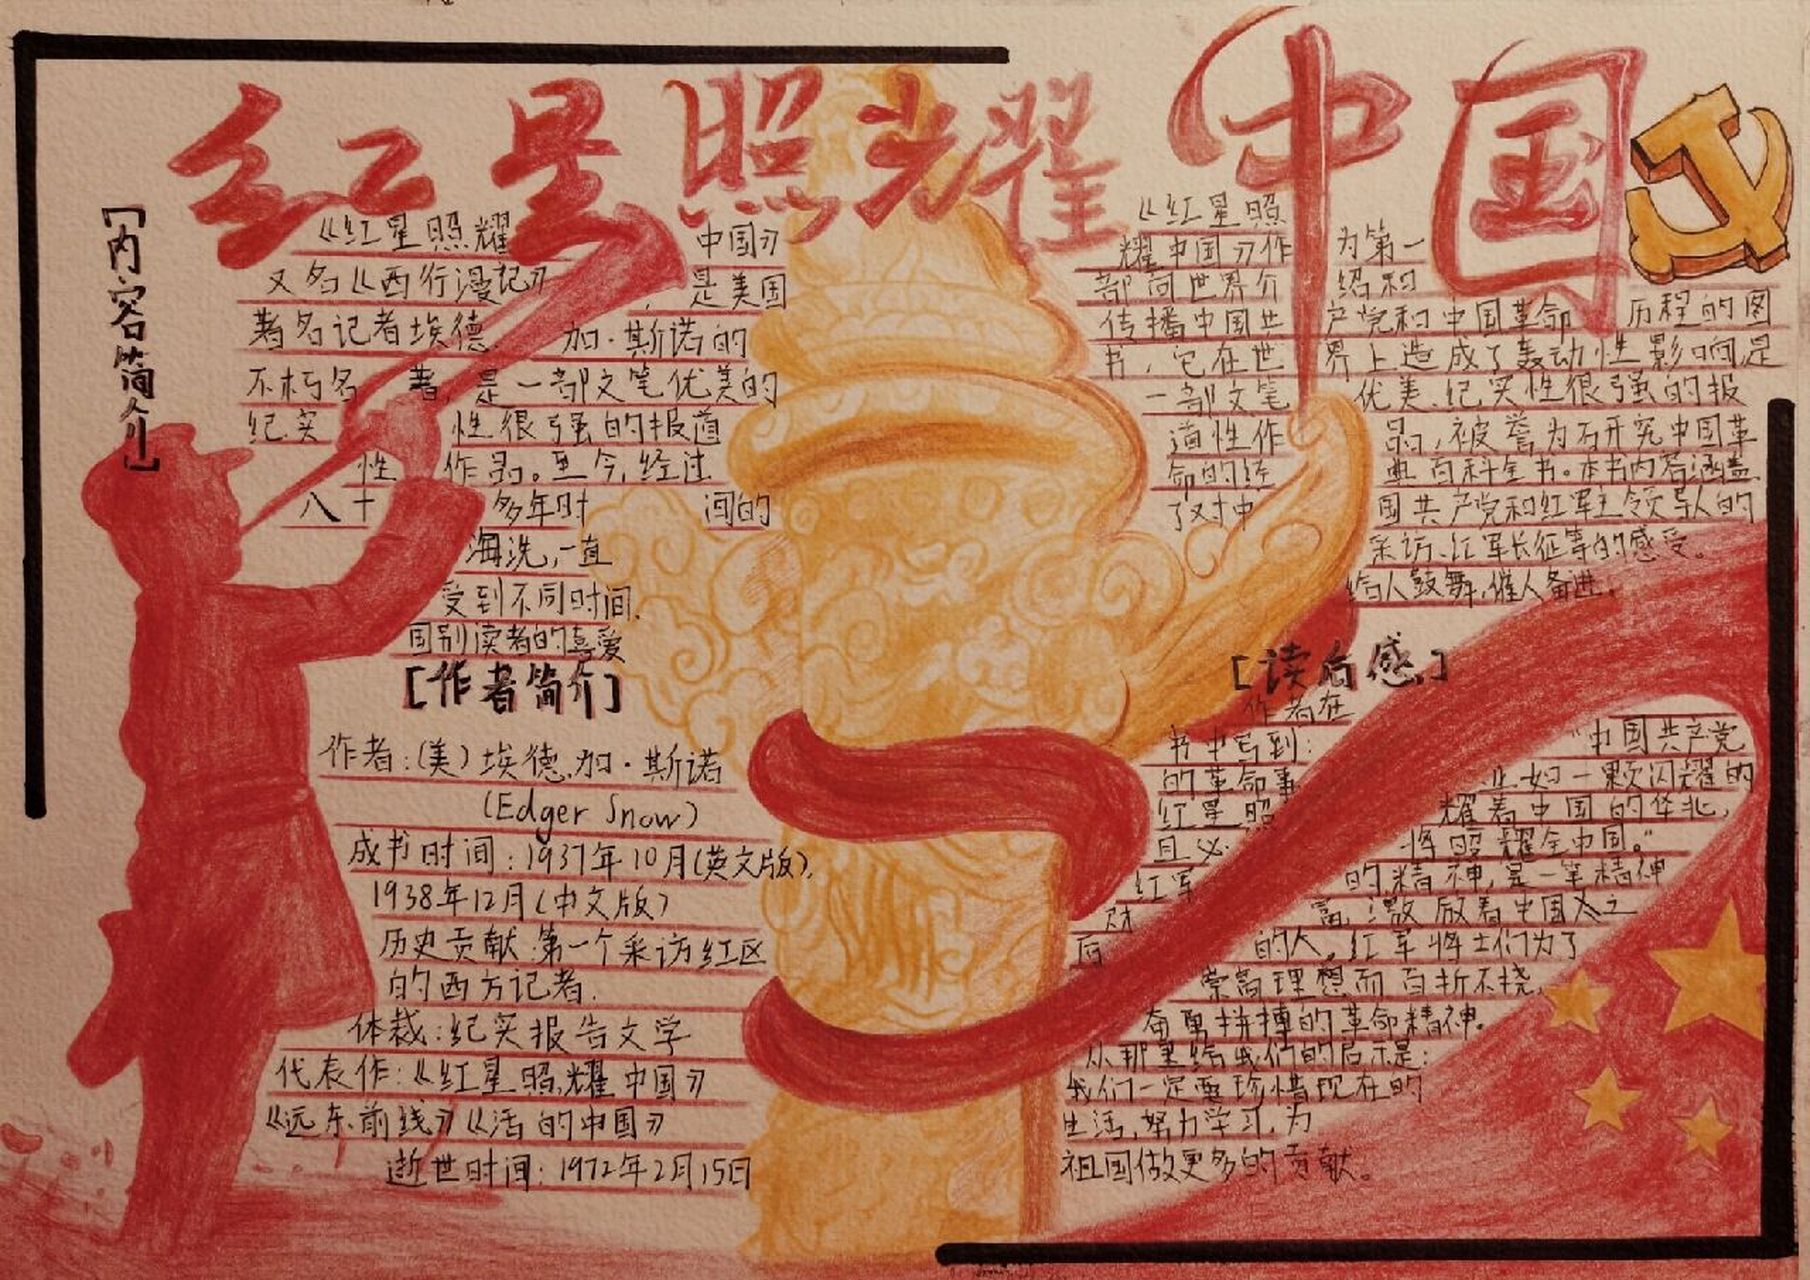 红星照耀中国
[内容简介]
《红星照耀中国》
又名《西行漫记》,是美国
著名记者埃德.加·斯诺的
不朽名著,是一部文笔优美的
纪实性很强的报道
性作品。至今,经过
八十多年时间的
海洗,一直
受到不同时间.
国别读者的喜爱
[作者简介]
作者:(美)埃德.加·斯诺
(Edger Snow)
成书时间:1937年10月(英文版),
1938年12月(中文版)
历史贡献:第一个采访红区
的西方记者.
体裁:纪实报告文学
代表作:《红星照耀中国》
《远东前线》《活的中国》
逝世时间:1972年2月15日
《红星照
耀中国》作为第一
部向世界介绍和
传播中国共产党和中国革命历程的图
书,它在世界上造成了轰动性影响是
一部文笔优美.纪实性很强的报
道性作品,被誉为研究中国革
命的经典百科全书。本书内容涵盖
了对中国共产党和红军主领导人的
采访、红军长征等的感受。
给人鼓舞,催人奋进.
[读后感]
作者在
书中写到:"中国共产党
的革命事业如一颗闪耀的
红星照耀着中国的华北,
且必将照耀全中国。"
红军的精神,是一笔精神
财富
的人,红军将士们为了
崇高理想而百折不挠,
奋勇拼搏的革命精神。
从那里给我们的启示是:
我们一定要珍惜现在的
生活,努力学习,为
祖国做更多的贡献。